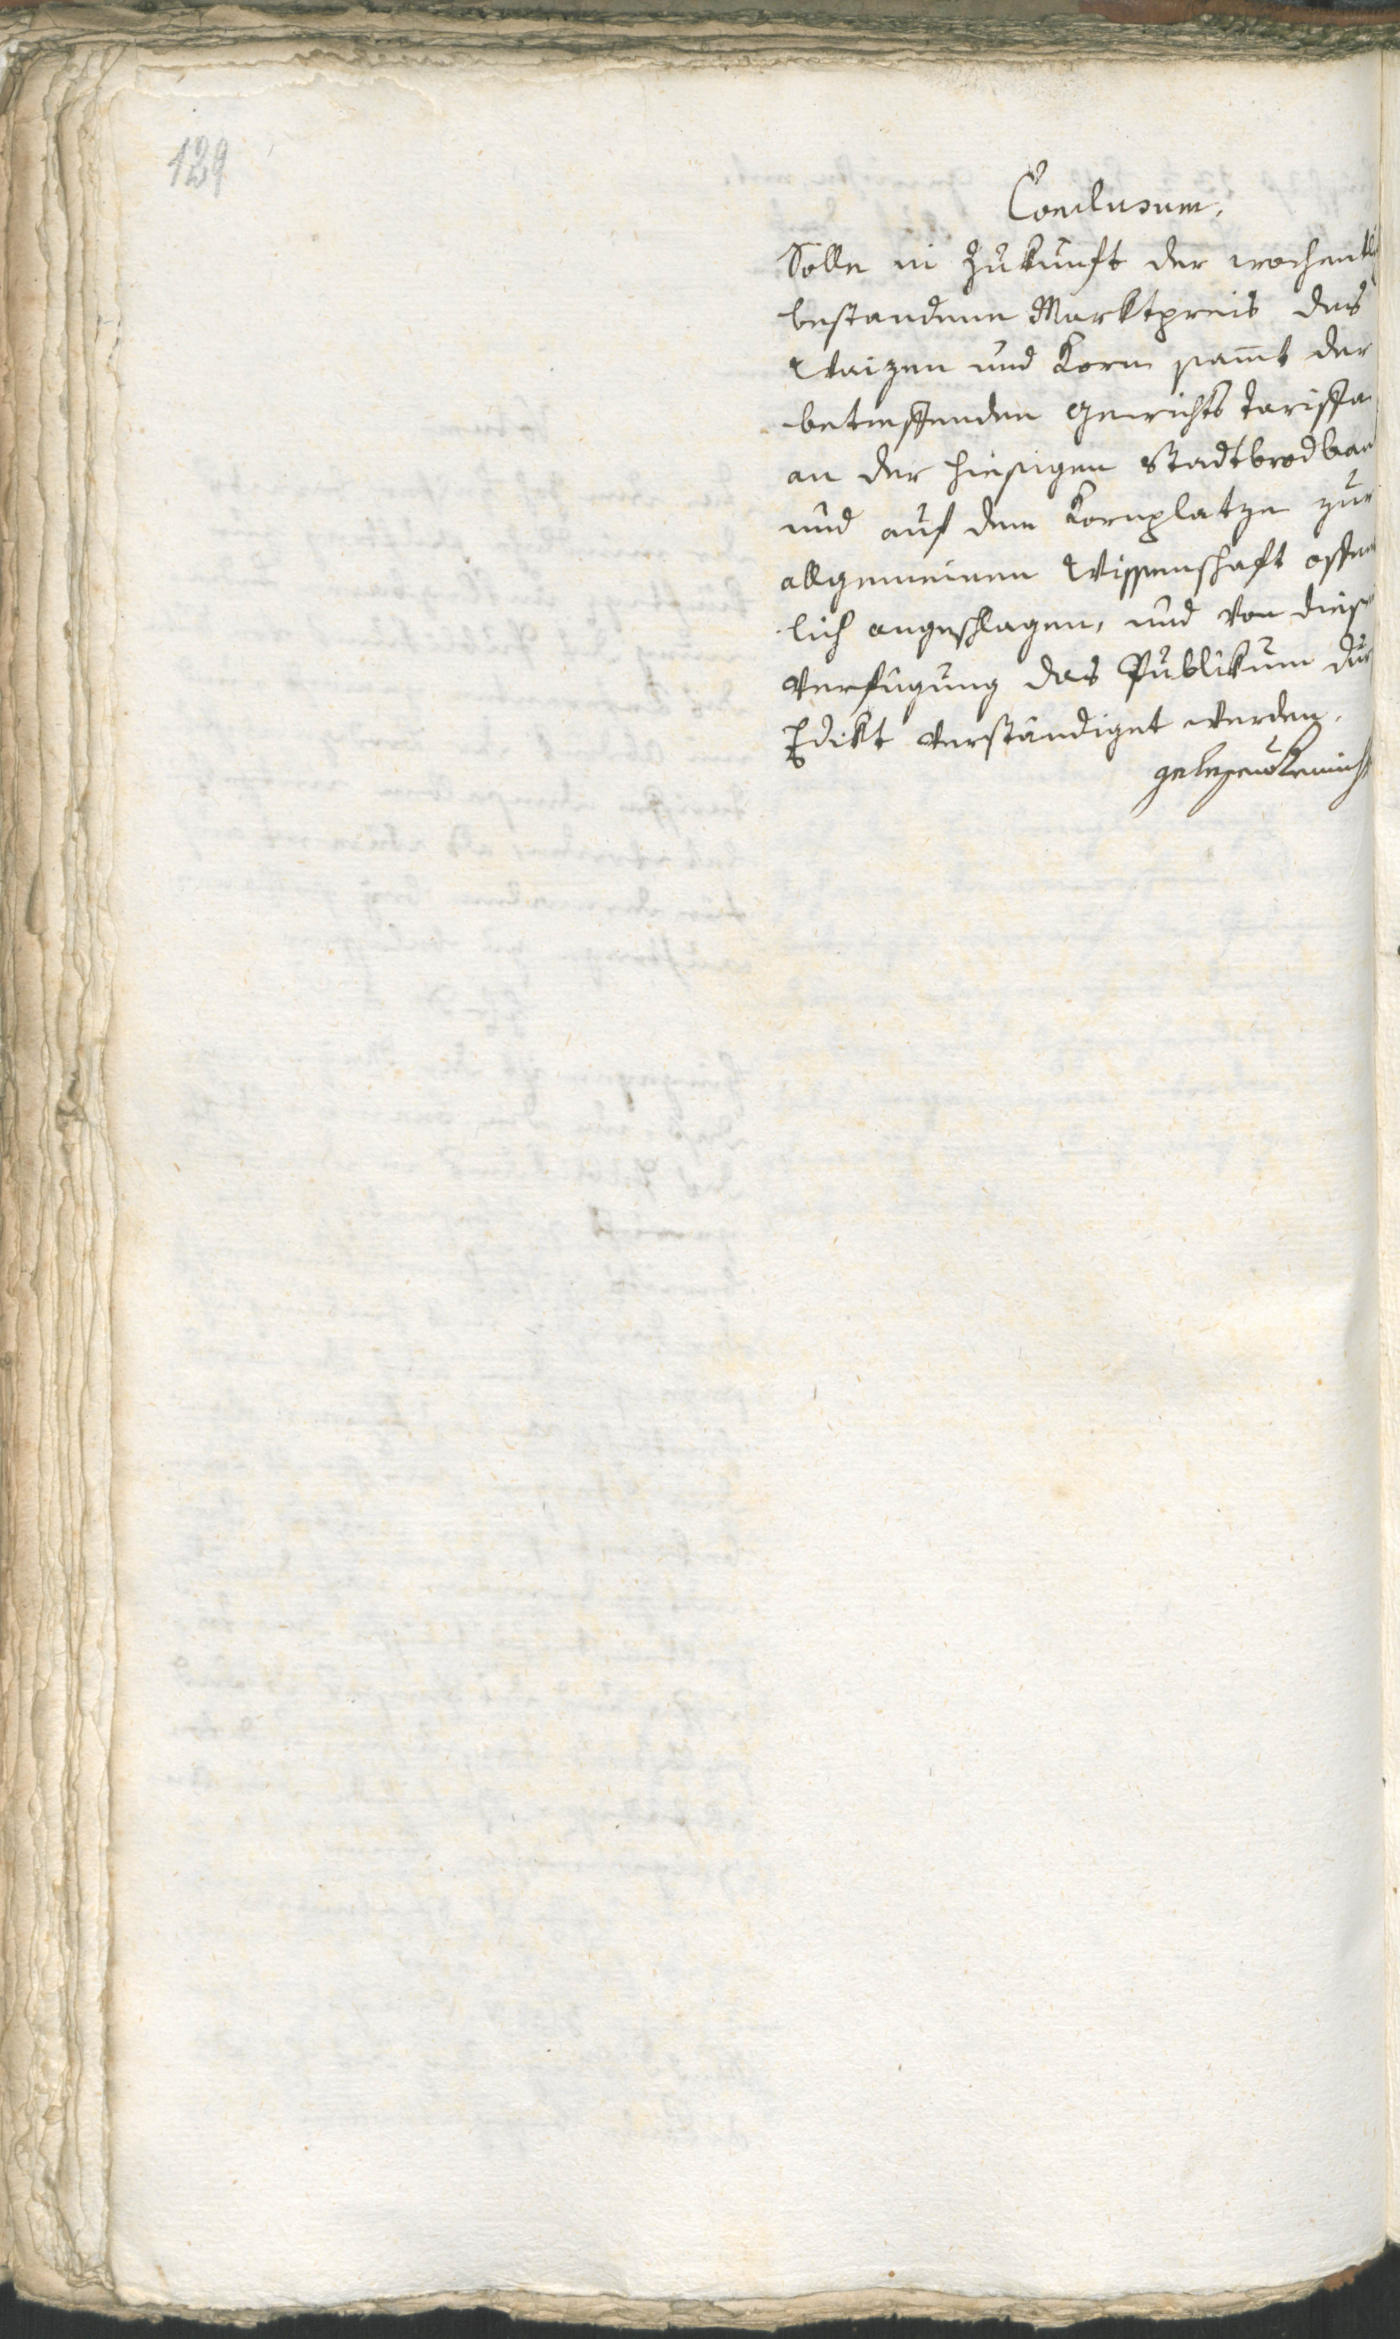 129
Conclusum.
Solle in Zukunft der wochentli
bestandene Marktpreis des
Waizen und Korn sam̅t der
betreffenden Gewichts Tariffa
an der hiesigen Stadtbrodban
und auf dem Kornplatze zur
allgemeinen Wissenschaft offen
lich angeschlagen, und von dies
Verfügung das Publikum dur
Edikt verständiget werden.